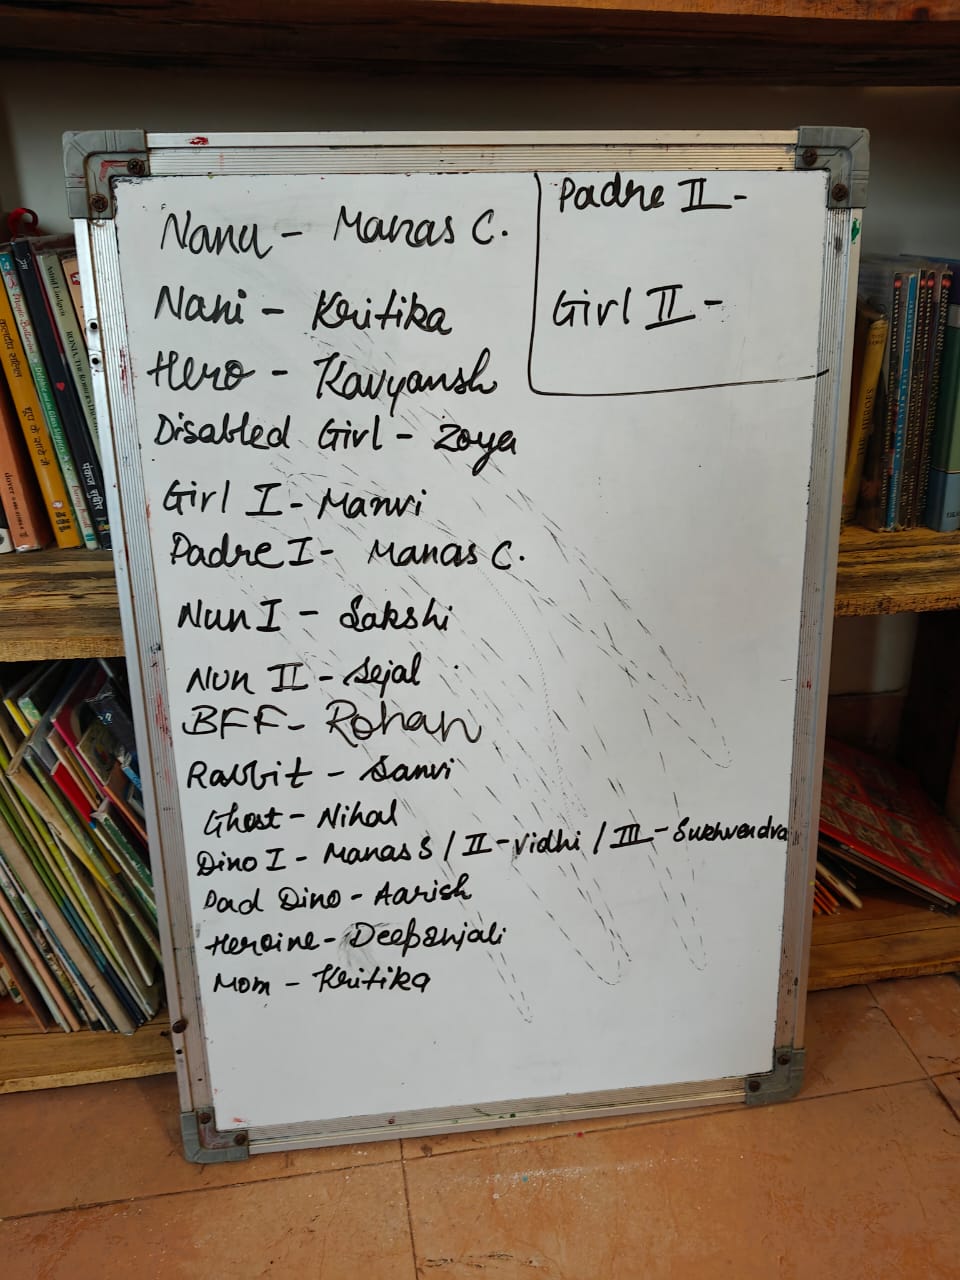 Nanu - Manas C.
Nani - Kritika
Hero - Kavyansh
Disabled Girl - Zoya
Girl I - Manvi
Padre I - Manas C.
Nun I - Sakshi
Nun II - Sejal
BFF - Rohan
Rabbit - Sanvi
Ghost - Nihal
Dino I - Manas S / II - Vidhi / III - Sukhvendra
Dad Dino - Aarish
Heroine - Deepanjali
Mom - Kritika
Padre II -
Girl II -